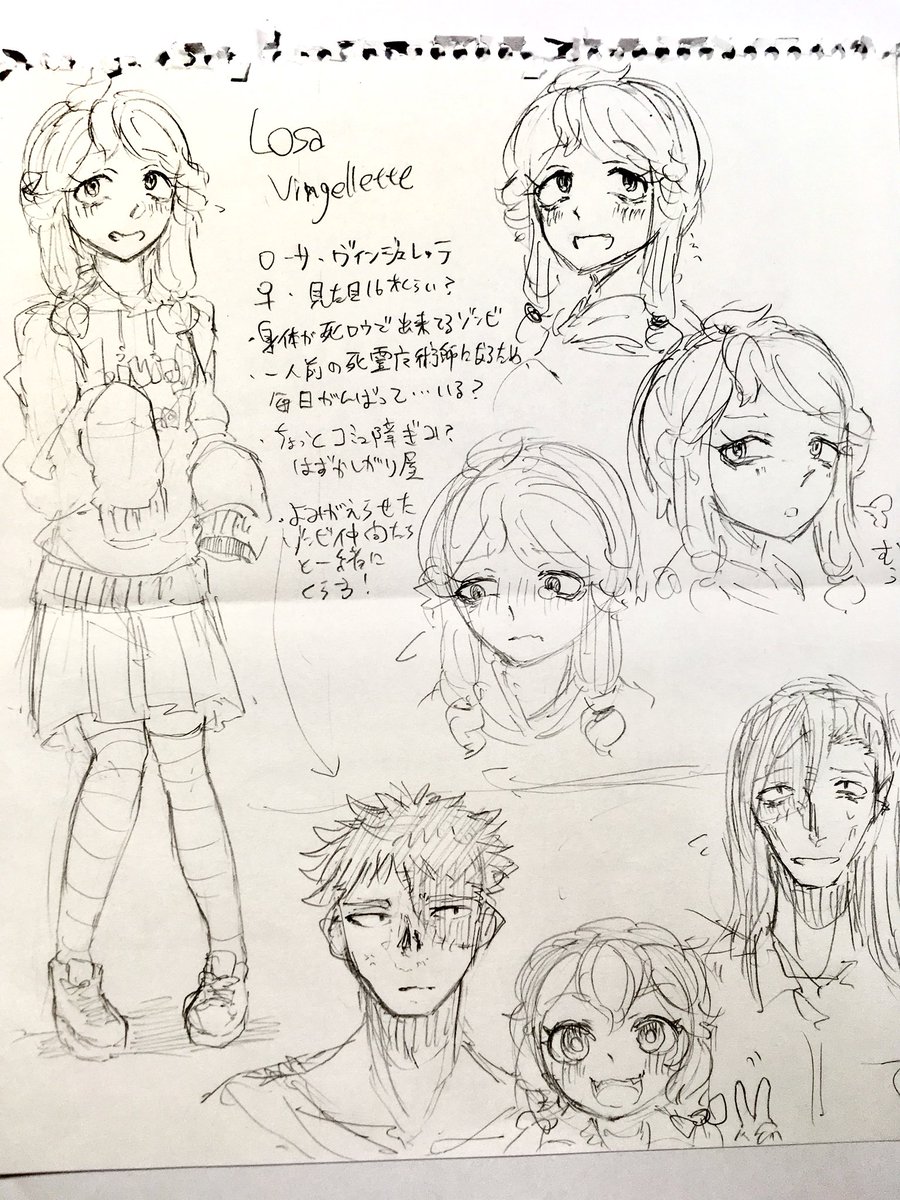 Losa
Vingellette
ローサ・ヴィンジュレッテ
♀・見た目16才くらい?
・身体が死ロウで出来てるゾンビ
・一人前の死霊術師になるため
毎日がんばって…いる?
・ちょっとコミュ障ぎみ?
はずかしがり屋
・よみがえらせた
ゾンビ仲間たち
と一緒に
くらす!
むっ